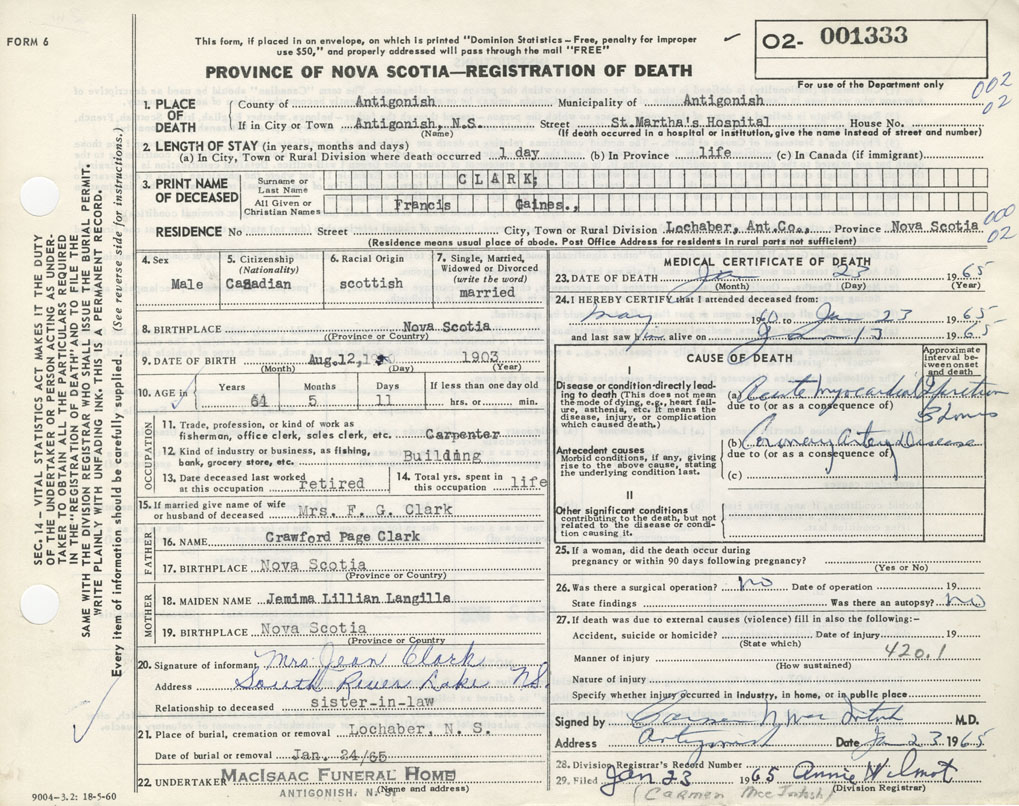 FORM 6
This form, if placed in an envelope, on which is printed "Dominion Statistics – Free, penalty for improper
use $50," and properly addressed will pass through the mail "FREE"
PROVINCE OF NOVA SCOTIA—REGISTRATION OF DEATH
02- 001333
For use of the Department only
002
02
1. PLACE OF DEATH
County of Antigonish Municipality of Antigonish
If in City or Town Antigonish, N.S. Street St.Martha's Hospital House No.
(Name) (If death occurred in a hospital or institution, give the name instead of street and number)
2. LENGTH OF STAY (in years, months and days)
(a) In City, Town or Rural Division where death occurred 1 day (b) In Province life (c) In Canada (if immigrant)
3. PRINT NAME OF DECEASED
Surname or Last Name CLARK;
All Given or Christian Names Francis Gaines.,
RESIDENCE No Street City, Town or Rural Division Lochaber, Ant.Co., Province Nova Scotia
000
02
(Residence means usual place of abode. Post Office Address for residents in rural parts not sufficient)
4. Sex
Male
5. Citizenship
(Nationality)
Canadian
6. Racial Origin
scottish
7. Single, Married,
Widowed or Divorced
(write the word)
married
8. BIRTHPLACE Nova Scotia
(Province or Country)
9. DATE OF BIRTH Aug.12, 1903
(Month) (Day) (Year)
10. AGE in
Years Months Days If less than one day old
61 5 11 hrs. or min.
OCCUPATION
11. Trade, profession, or kind of work as
fisherman, office clerk, sales clerk, etc. Carpenter
12. Kind of industry or business, as fishing,
bank, grocery store, etc. Building
13. Date deceased last worked
at this occupation retired
14. Total yrs. spent in
this occupation life
15. If married give name of wife
or husband of deceased Mrs. F. G. Clark
FATHER
16. NAME Crawford Page Clark
17. BIRTHPLACE Nova Scotia
(Province or Country)
MOTHER
18. MAIDEN NAME Jemima Lillian Langille
19. BIRTHPLACE Nova Scotia
(Province or Country
20. Signature of informant Mrs Jean Clark
Address South River Lake NS.
Relationship to deceased sister-in-law
21. Place of burial, cremation or removal Lochaber, N. S.
Date of burial or removal Jan. 24/65
22. UNDERTAKER MacIsaac Funeral Home
ANTIGONISH, N. S. (Name and address)
MEDICAL CERTIFICATE OF DEATH
23. DATE OF DEATH Jan 23 1965
(Month) (Day) (Year)
24. I HEREBY CERTIFY that I attended deceased from:
May 1960 to Jan 23 1965
and last saw him alive on Jan 13 1965
CAUSE OF DEATH
Approximate
interval between
onset
and death
I
Disease or condition directly leading
to death (This does not
mean the mode of dying, e.g., heart failure,
asthenia, etc. It means the
disease, injury, or complication
which caused death.)
(a) Acute Myocardial Infarction
due to (or as a consequence of) 3 hours
Antecedent causes
Morbid conditions, if any, giving
rise to the above cause, stating
the underlying condition last.
(b) Coronary Artery Disease
due to (or as a consequence of)
(c)
II
Other significant conditions
contributing to the death, but not
related to the disease or condition
causing it.
25. If a woman, did the death occur during
pregnancy or within 90 days following pregnancy?
(Yes or No)
26. Was there a surgical operation? no Date of operation 19
State findings Was there an autopsy? no
27. If death was due to external causes (violence) fill in also the following:–
Accident, suicide or homicide? Date of injury 19
(State which)
Manner of injury 420.1
(How sustained)
Nature of injury
Specify whether injury occurred in industry, in home, or in public place
Signed by Carmen N. MacIntosh M.D.
Address Antigonish Date Jan 23 1965
28. Division Registrar's Record Number
29. Filed Jan 23 1965 Annie Wilmot
(Division Registrar)
(Carmen MacIntosh)
SEC. 14 – VITAL STATISTICS ACT MAKES IT THE DUTY
OF THE UNDERTAKER OR PERSON ACTING AS UNDERTAKER
TO OBTAIN ALL THE PARTICULARS REQUIRED
IN THE "REGISTRATION OF DEATH" AND TO FILE THE
SAME WITH THE DIVISION REGISTRAR WHO SHALL ISSUE THE BURIAL PERMIT.
WRITE PLAINLY WITH UNFADING INK–THIS IS A PERMANENT RECORD.
Every item of information should be carefully supplied. (See reverse side for instructions.)
9004–3.2: 18-5-60